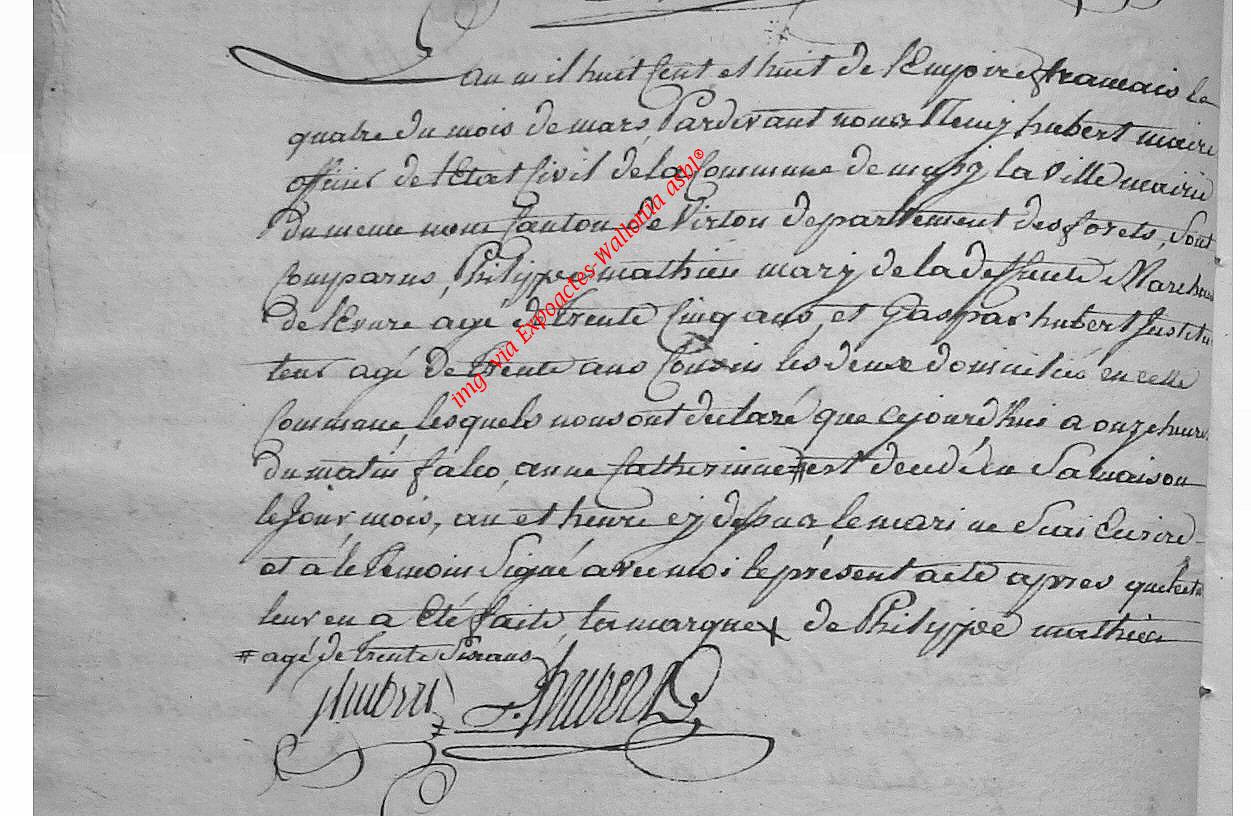 Lan mil huit Cent et huit de l'Empire francais le
quatre du mois de mars Pardevant nous hubert maire
officier de l'Etat Civil de la Commune de mussy la ville mairie
du meme nom Canton de Virton departement des forets, Sont
Comparus, Philippe mathieu mary de la deffunte
agé de trente Cinq ans, et Gaspar hubert Institu
teur agé de trente ans Cousin les deux domiciliés en cette
Commune, lesquels nous ont declaré que cejourd'hui a onze heures
du matin falco, anne Catherinne # est decedé en Sa maison
le Jour, mois, an et heure cy dessus, le mari ne Scai Ecrire
et à le temoin Signé avec moi le présent acte apres que lecture
leur en a Eté faite, la marque x de Philippe mathieu
# agé de trente Six ans
hubert
hubert
img via Expoactes-Wallonia asbl®